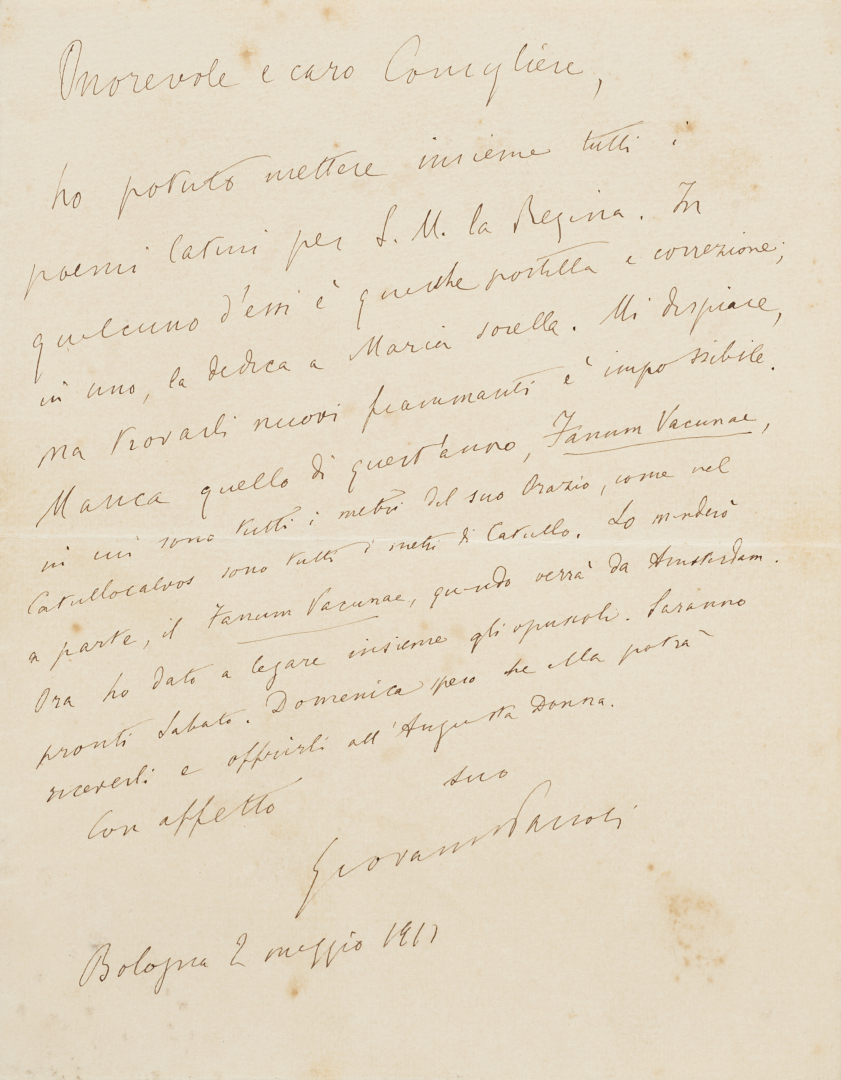 Onorevole e caro Consigliere,
ho potuto mettere insieme tutti i
poemi latini per S. M. la Regina. In
qualcuno d'essi è qualche postilla e correzione;
in uno, la dedica a Maria sorella. Mi dispiace,
ma trovarli nuovi fiammanti è impossibile.
Manca quello di quest'anno, Fanum Vacunae,
in cui sono tutti i metri del suo Orazio, come nel
Catullocalvos sono tutti i metri di Catullo. Lo manderò
a parte, il Fanum Vacunae, quando verrà da Amsterdam.
Ora ho dato a legare insieme gli opuscoli. Saranno
pronti Sabato. Domenica spero che Ella potrà
riceverli e offrirli all'Augusta Donna.
Con affetto suo
Giovanni Pascoli
Bologna 2 maggio